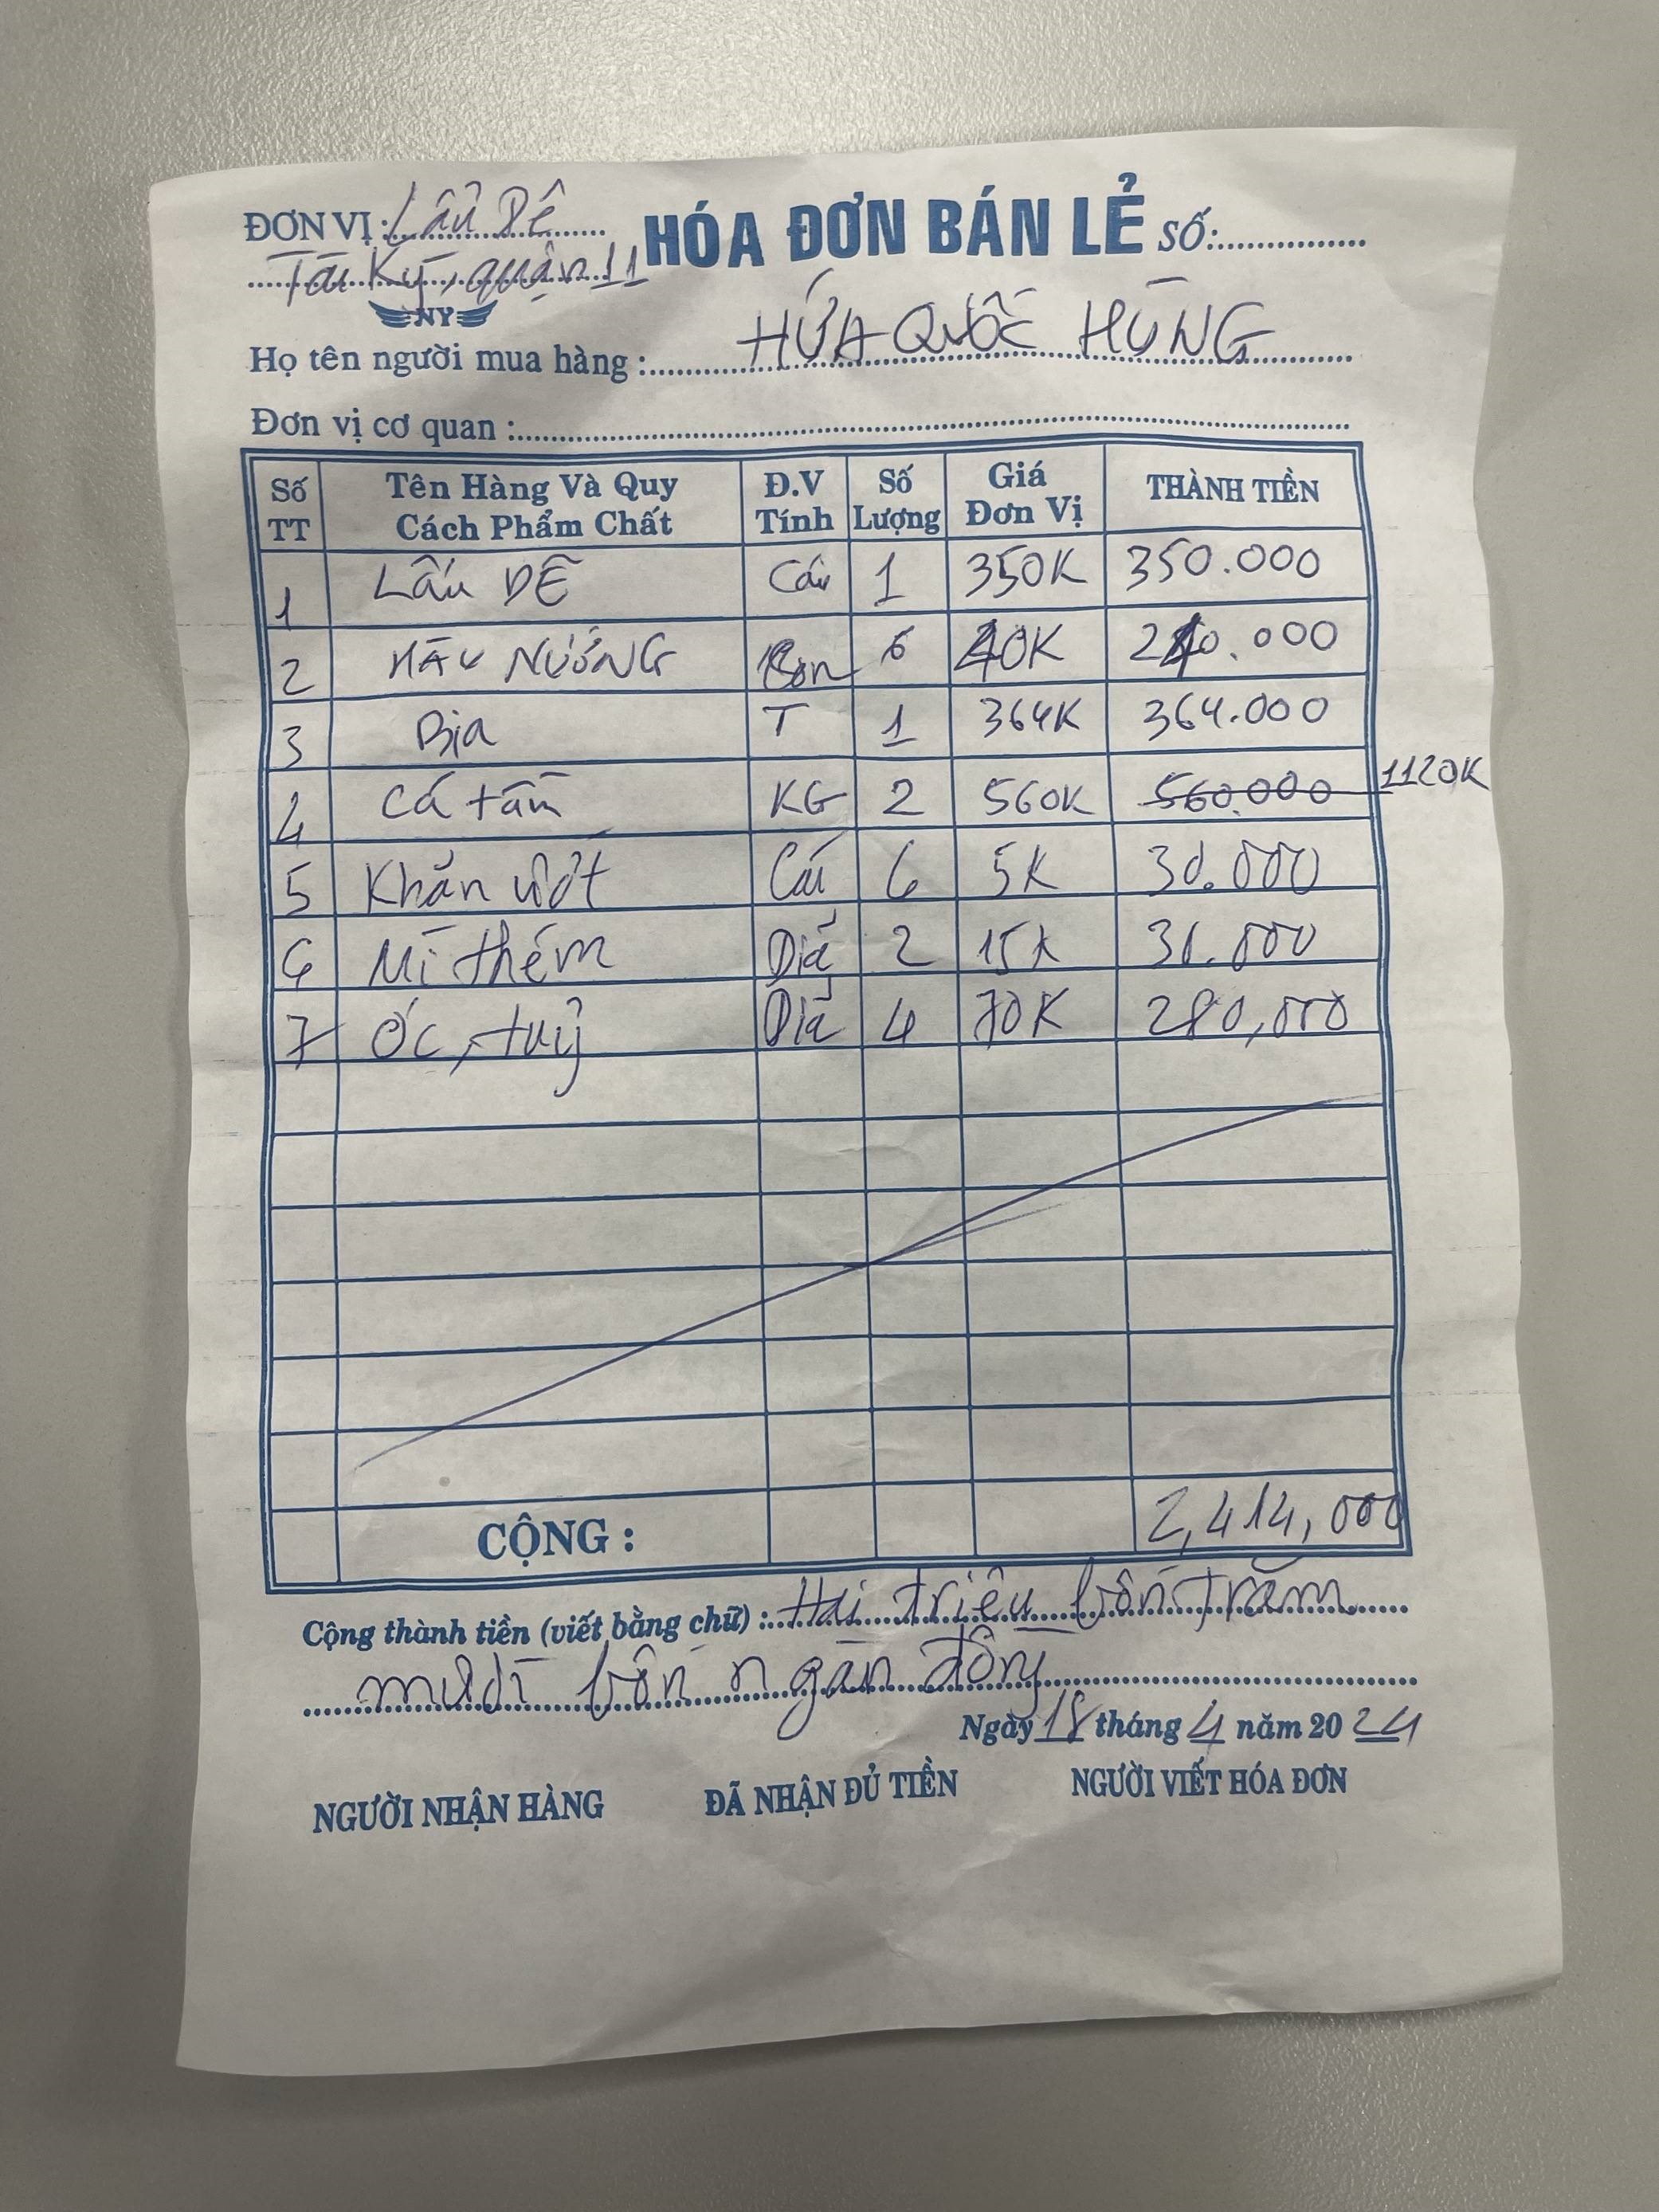 ĐƠN VỊ: Lẩu Dê HÓA ĐƠN BÁN LẺ SỐ:
Tài Ký, quận 11
NY
Họ tên người mua hàng: HỨA QUỐC HÙNG
Đơn vị cơ quan:
Số TT Tên Hàng Và Quy Cách Phẩm Chất Đ.V Tính Số Lượng Giá Đơn Vị THÀNH TIỀN
1 Lẩu DÊ Cái 1 350K 350.000
2 HÀU NƯỚNG Con 6 40K 240.000
3 Bia T 1 364K 364.000
4 Cá tầm KG 2 560K 560.000 1120K
5 Khăn ướt Cái 6 5K 30.000
6 Mì thêm Dĩa 2 15K 30.000
7 Óc, tuỷ Dĩa 4 70K 280,000
CỘNG: 2,414,000
Cộng thành tiền (viết bằng chữ): Hai triệu bốn trăm
mười bốn ngàn đồng
Ngày 18 tháng 4 năm 2024
NGƯỜI NHẬN HÀNG ĐÃ NHẬN ĐỦ TIỀN NGƯỜI VIẾT HÓA ĐƠN